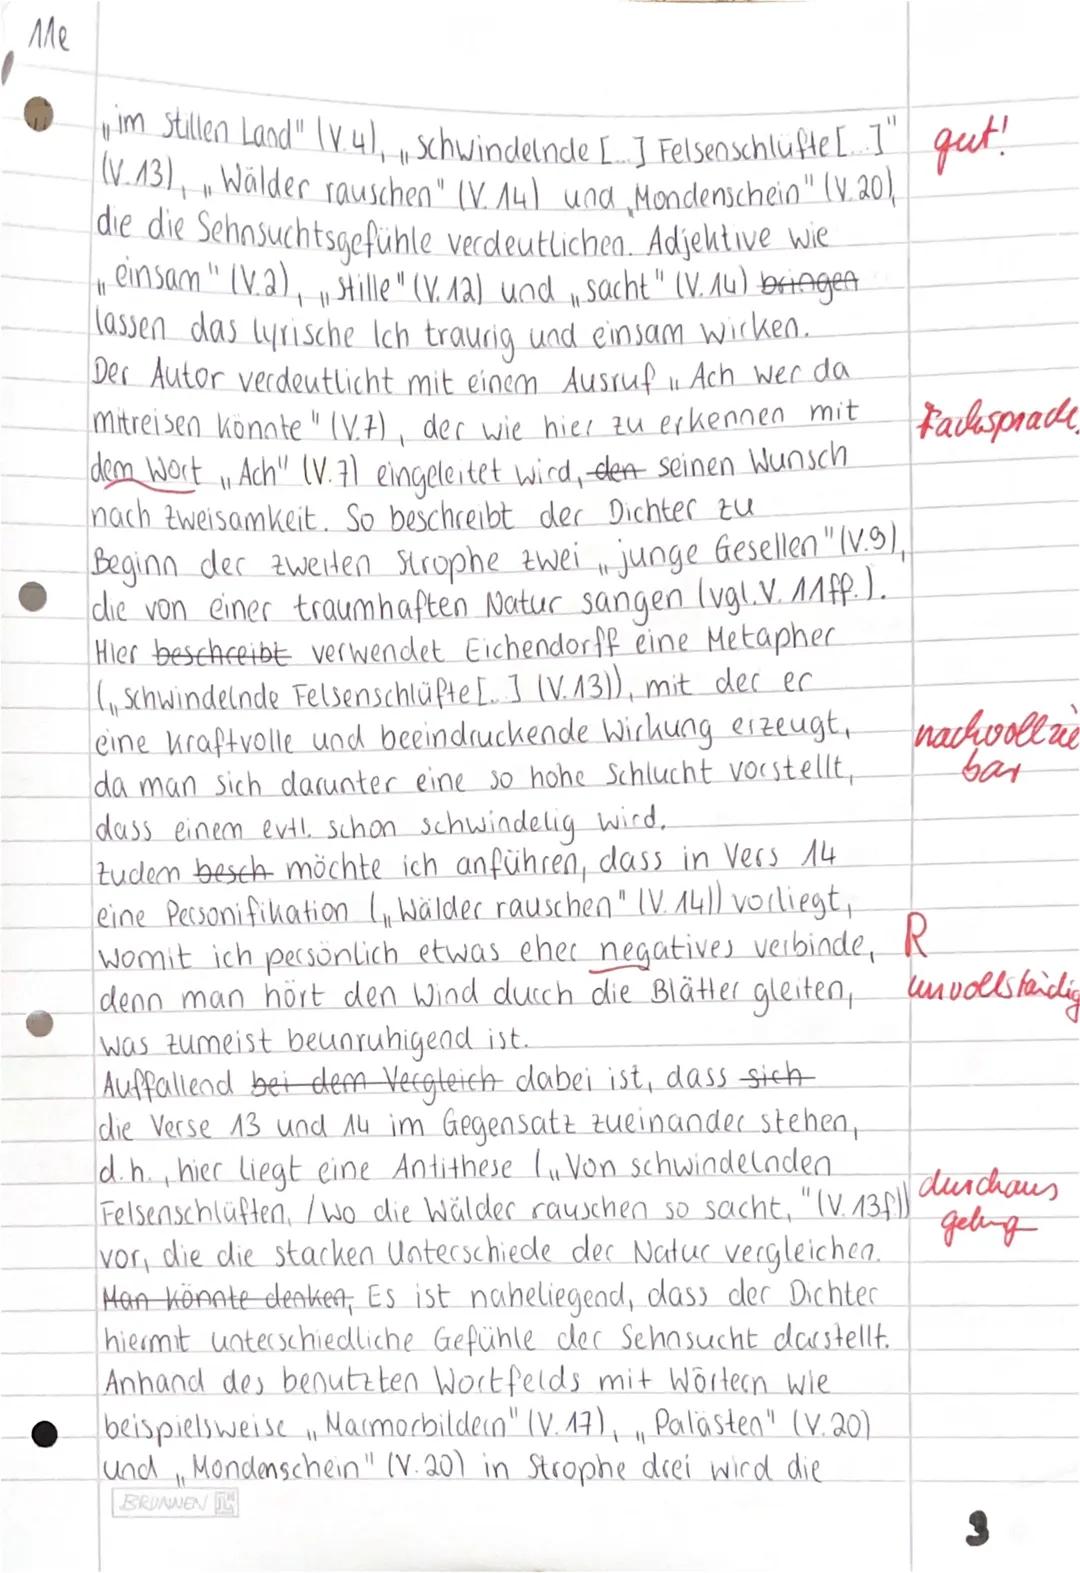 11e
„im stillen Land" (V.4), „schwindelnde [...] Felsenschlüfte[...]" gut!
(V.13), „Wälder rauschen" (V.14) und „Mondenschein" (V.20),
die die Sehnsuchtsgefühle verdeutlichen. Adjektive wie
„einsam" (V.2), „stille" (V.12) und „sacht" (V.14) bringen
lassen das lyrische Ich traurig und einsam wirken.
Der Autor verdeutlicht mit einem Ausruf „Ach wer da
mitreisen könnte" (V.7), der wie hier zu erkennen mit Fachsprache
dem Wort „Ach" (V.7) eingeleitet wird, den seinen Wunsch
nach Zweisamkeit. So beschreibt der Dichter zu
Beginn der zweiten Strophe zwei „junge Gesellen" (V.9),
die von einer traumhaften Natur sangen (vgl. V. 11ff.).
Hier beschreibt verwendet Eichendorff eine Metapher
(„schwindelnde Felsenschlüfte[...] (V.13)), mit der er
eine kraftvolle und beeindruckende Wirkung erzeugt, nachvollzie
da man sich darunter eine so hohe Schlucht vorstellt, bar
dass einem evtl. schon schwindelig wird.
Zudem besch möchte ich anführen, dass in Vers 14
eine Personifikation („Wälder rauschen" (V.14)) vorliegt,
womit ich persönlich etwas eher negatives verbinde, R
denn man hört den Wind durch die Blätter gleiten, unvollständig
was zumeist beunruhigend ist.
Auffallend bei dem Vergleich dabei ist, dass sich
die Verse 13 und 14 im Gegensatz zueinander stehen,
d.h., hier liegt eine Antithese („Von schwindelnden
Felsenschlüften, / Wo die Wälder rauschen so sacht," (V.13f)) durchaus
vor, die die starken Unterschiede der Natur vergleichen. gelung
Man könnte denken, Es ist naheliegend, dass der Dichter
hiermit unterschiedliche Gefühle der Sehnsucht darstellt.
Anhand des benutzten Wortfelds mit Wörtern wie
beispielsweise „Marmorbildern" (V.17), „Palästen" (V.20)
und „Mondenschein" (V.20) in Strophe drei wird die
BRUNNEN
3